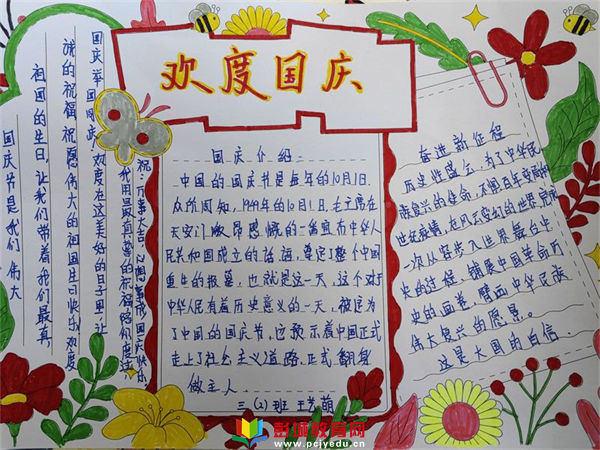 欢度国庆
国庆介绍:
中国的国庆节是每年的10月1日
众所周知,1949年的10月1日,毛主席在
天安门激昂慷慨的一番宣布中华人
民共和国成立的话语,奠定了整个中国
重生的根基,也就是这一天,这个对于
中华人民有着历史意义的一天,被定为
了中国的国庆节,这预示着中国正式
走上了社会主义道路,正式翻身
做主人.
三(2)班 王艺萌
奋进新征程
历史性盛会,为了中华民
族复兴的使命,不期百年变局的
世纪疫情,在风云变幻的世界,
一次从容步入世界舞台中
央的过程,铺展中国革命历
史的画卷,擘画中华民族
伟大复兴的愿景。
这是大国的自信.
国庆举国同庆,欢度在这美好的日子里,让
我用最真挚的祝福
祝万事大吉
国庆快乐
诚的祝福,祝愿伟大的祖国生日快乐,欢度
祖国的生日,让我们带着我们最真
国庆节是我们伟大
彭城教育网
www.pcjyedu.cn